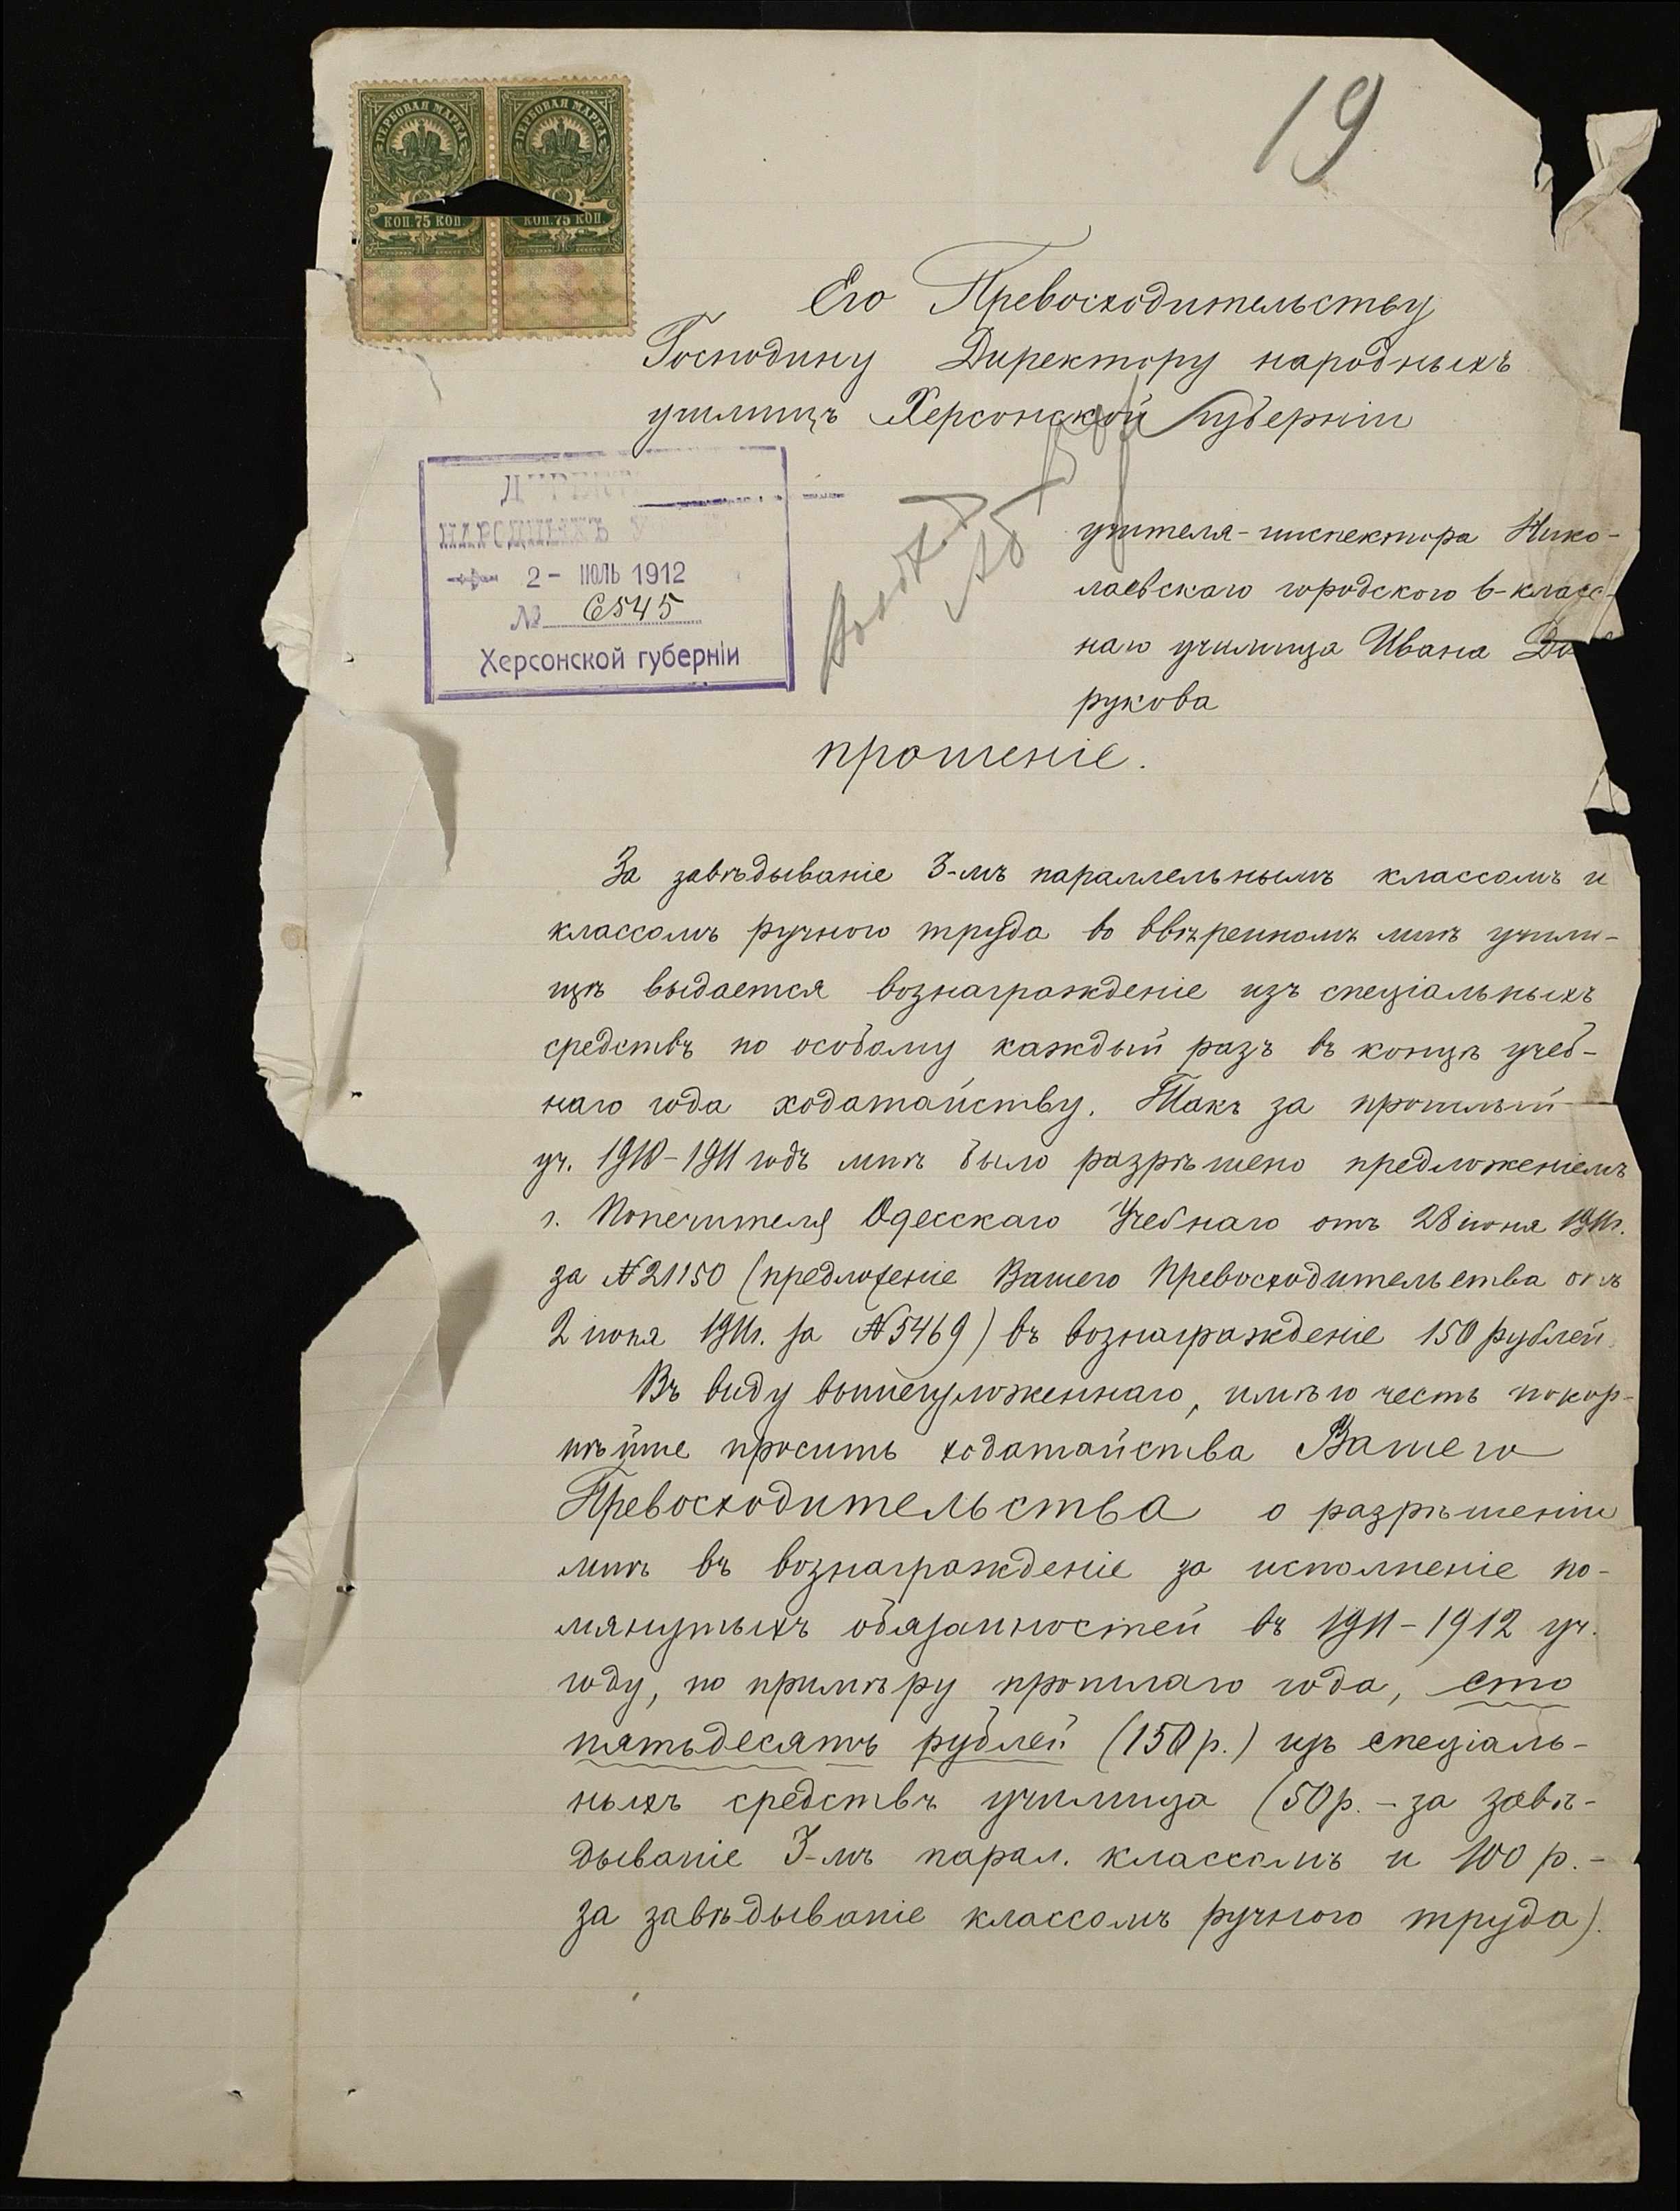 19
ГЕРБОВАЯ МАРКА ГЕРБОВАЯ МАРКА
КОП. 75 КОП. КОП. 75 КОП.
Его Превосходительству
Господину Директору народныхъ
училищъ Херсонской Губерніи
НАРОДНЫХЪ
2 - ІЮЛЬ 1912
№ 6545
Херсонской губерніи
учителя-инспектора Нико-
лаевскаго городского 6-класс-
наго училища Ивана
рукова
прошеніе.
За завѣдываніе 3-мъ параллельнымъ классомъ и
классомъ ручного труда во ввѣренномъ мнѣ учили-
щѣ выдается вознагражденіе изъ спеціальныхъ
средствъ по особому каждый разъ въ концѣ учеб-
наго года ходатайству. Такъ за прошлый
уч. 1910-1911 годъ мнѣ было разрѣшено предложеніемъ
г. Попечителя Одесскаго Учебнаго отъ 28 іюня 1911г.
за №21150 (предложеніе Вашего Превосходительства отъ
2 іюля 1911г. за №5469) въ вознагражденіе 150 рублей.
Въ виду вышеизложеннаго, имѣю честь покор-
нѣйше просить ходатайства Вашего
Превосходительства о разрѣшеніи
мнѣ въ вознагражденіе за исполненіе по-
мянутыхъ обязанностей въ 1911-1912 уч.
году, по примѣру прошлаго года, сто
пятьдесятъ рублей (150р.) изъ спеціаль-
ныхъ средствъ училища (50р. - за завѣ-
дываніе 3-мъ парал. классомъ и 100 р. -
за завѣдываніе классомъ ручного труда).